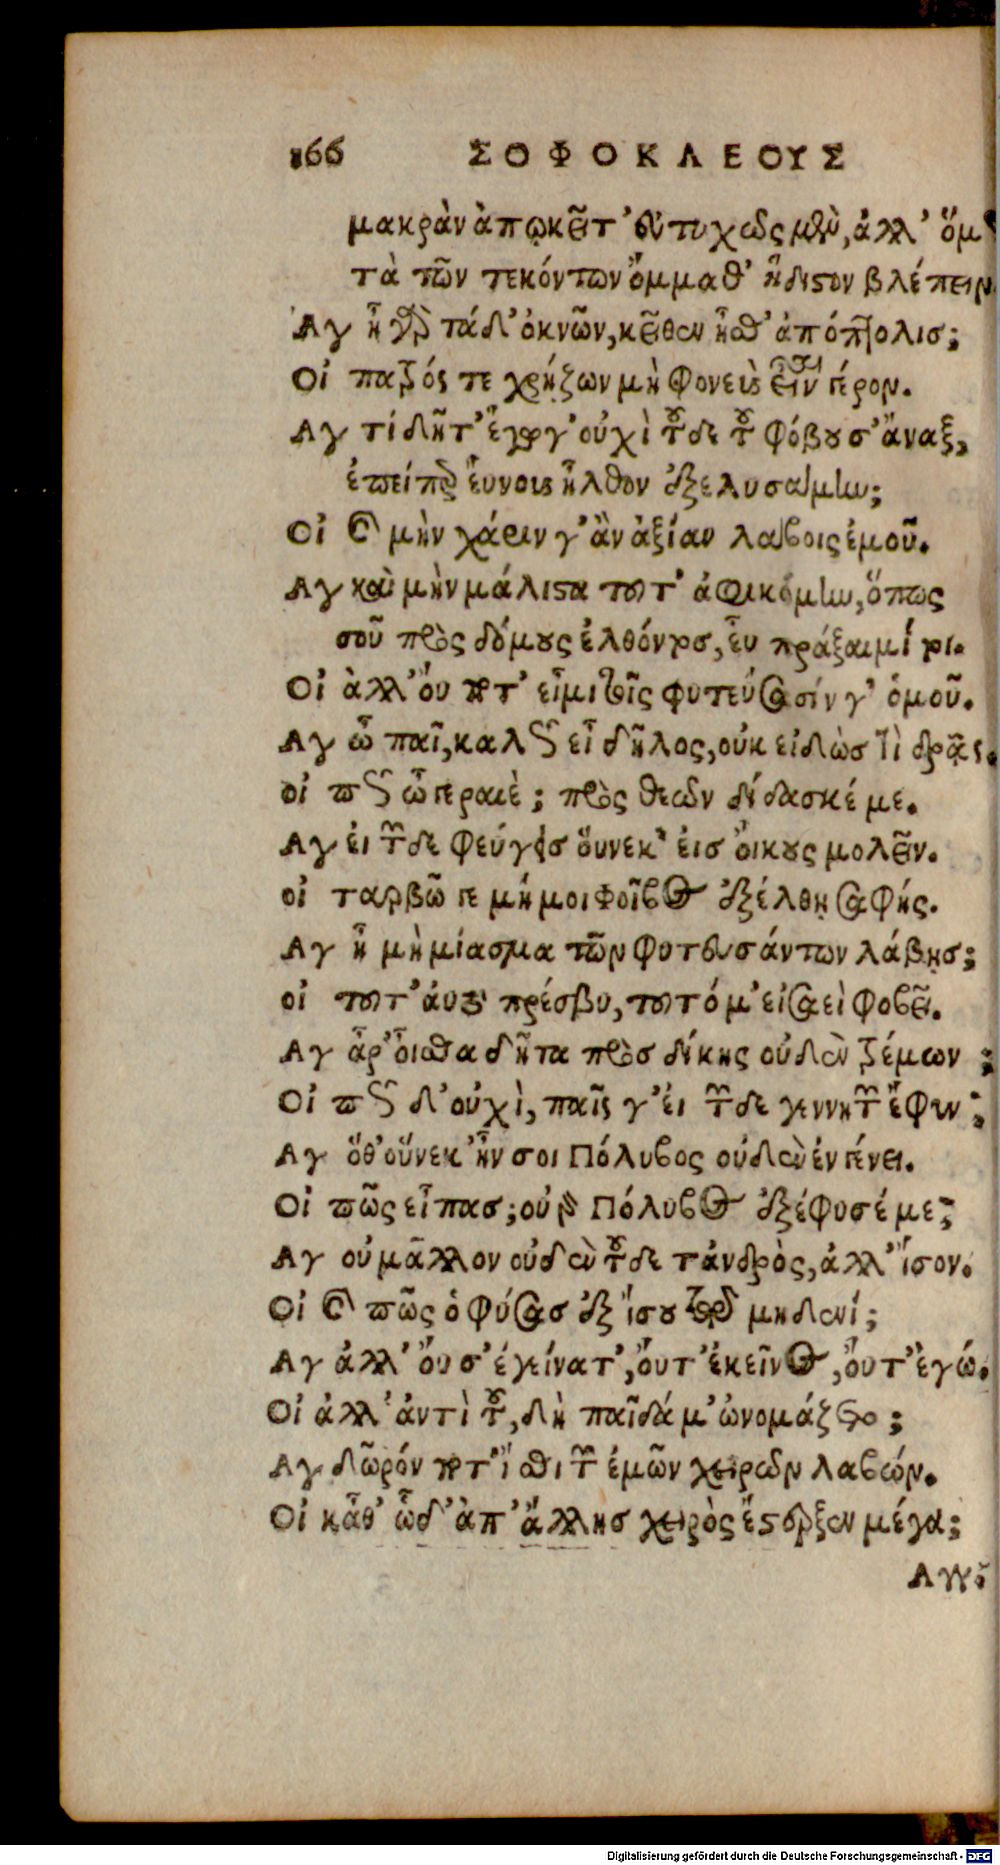 166 ΣΟΦΟΚΛΕΟΥΣ
μακρὰν ἀπῳκεῖτ' εὐτυχῶς μὲν, ἀλλ' ὅμ
τὰ τῶν τεκόντων ὄμμαθ' ἥδιστον βλέπειν
Αγ ἦ γὰρ τάδ' ὀκνῶν, κεῖθεν ἦσθ' ἀπόπτολισ;
Οἰ πατρός τε χρῄζων μὴ φονεὺς εἶναι γέρον.
Αγ τί δῆτ' ἔγωγ' οὐχὶ τοῦδε τοῦ φόβου σ' ἄναξ,
ἐπείπερ εὔνους ἦλθον ἐξελυσαμην;
Οἰ καὶ μὴν χάριν γ' ἂν ἀξίαν λαβοις ἐμοῦ.
Αγ καὶ μὴν μάλιστα τοῦτ' ἀφικόμην, ὅπως
σοῦ πρὸς δόμους ἐλθόντοσ, εὖ πράξαιμί τι.
Οἰ ἀλλ' οὔ ποτ' εἶμι τοῖς φυτεύσασίν γ' ὁμοῦ.
Αγ ὦ παῖ, καλῶς εἶ δῆλος, οὐκ εἰδὼσ τὶ δρᾷς.
οἰ πῶς ὦ γεραιὲ; πρὸς θεῶν δίδασκέ με.
Αγ ἐι τῶνδε φεύγεισ οὕνεκ' ἐισ οἴκους μολεῖν.
οἰ ταρβῶ γε μή μοι Φοῖβος ἐξέλθῃ σαφής.
Αγ ἦ μὴ μίασμα τῶν φυτευσάντων λάβῃσ;
οἰ τοῦτ' ἀυτὸ πρέσβυ, τοῦτό μ' εἰσαεὶ φοβεῖ.
Αγ ἆρ' οἶσθα δῆτα πρὸσ δίκης οὐδὲν τρέμων;
Οἰ πῶς δ' οὐχὶ, παῖς γ' ἐι τῶνδε γεννητῶν ἔφυν;
Αγ ὅθ' οὕνεκ' ἦν σοι Πόλυβος οὐδὲν ἐν γένει.
Οἰ πῶς εἶπασ; οὐ γὰρ Πόλυβος ἐξέφυσέ με;
Αγ οὐ μᾶλλον οὐδὲν τοῦδε τἀνδρὸς, ἀλλ' ἴσον.
Οἰ καὶ πῶς ὁ φύσασ ἐξ ἴσου τῷ μηδενί;
Αγ ἀλλ' οὔ σ' ἐγείνατ', οὔτ' ἐκεῖνος, οὔτ' ἐγώ.
Οἰ ἀλλ' ἀντὶ τοῦ, δὴ παῖδά μ' ὠνομάζετο;
Αγ δῶρόν ποτ' ἴσθι τῶν ἐμῶν χειρῶν λαβών.
Οἰ κᾆθ' ὧδ' ἀπ' ἄλλησ χειρὸς ἔστερξεν μέγα;
Αγγ.
Digitalisierung gefördert durch die Deutsche Forschungsgemeinschaft - DFG